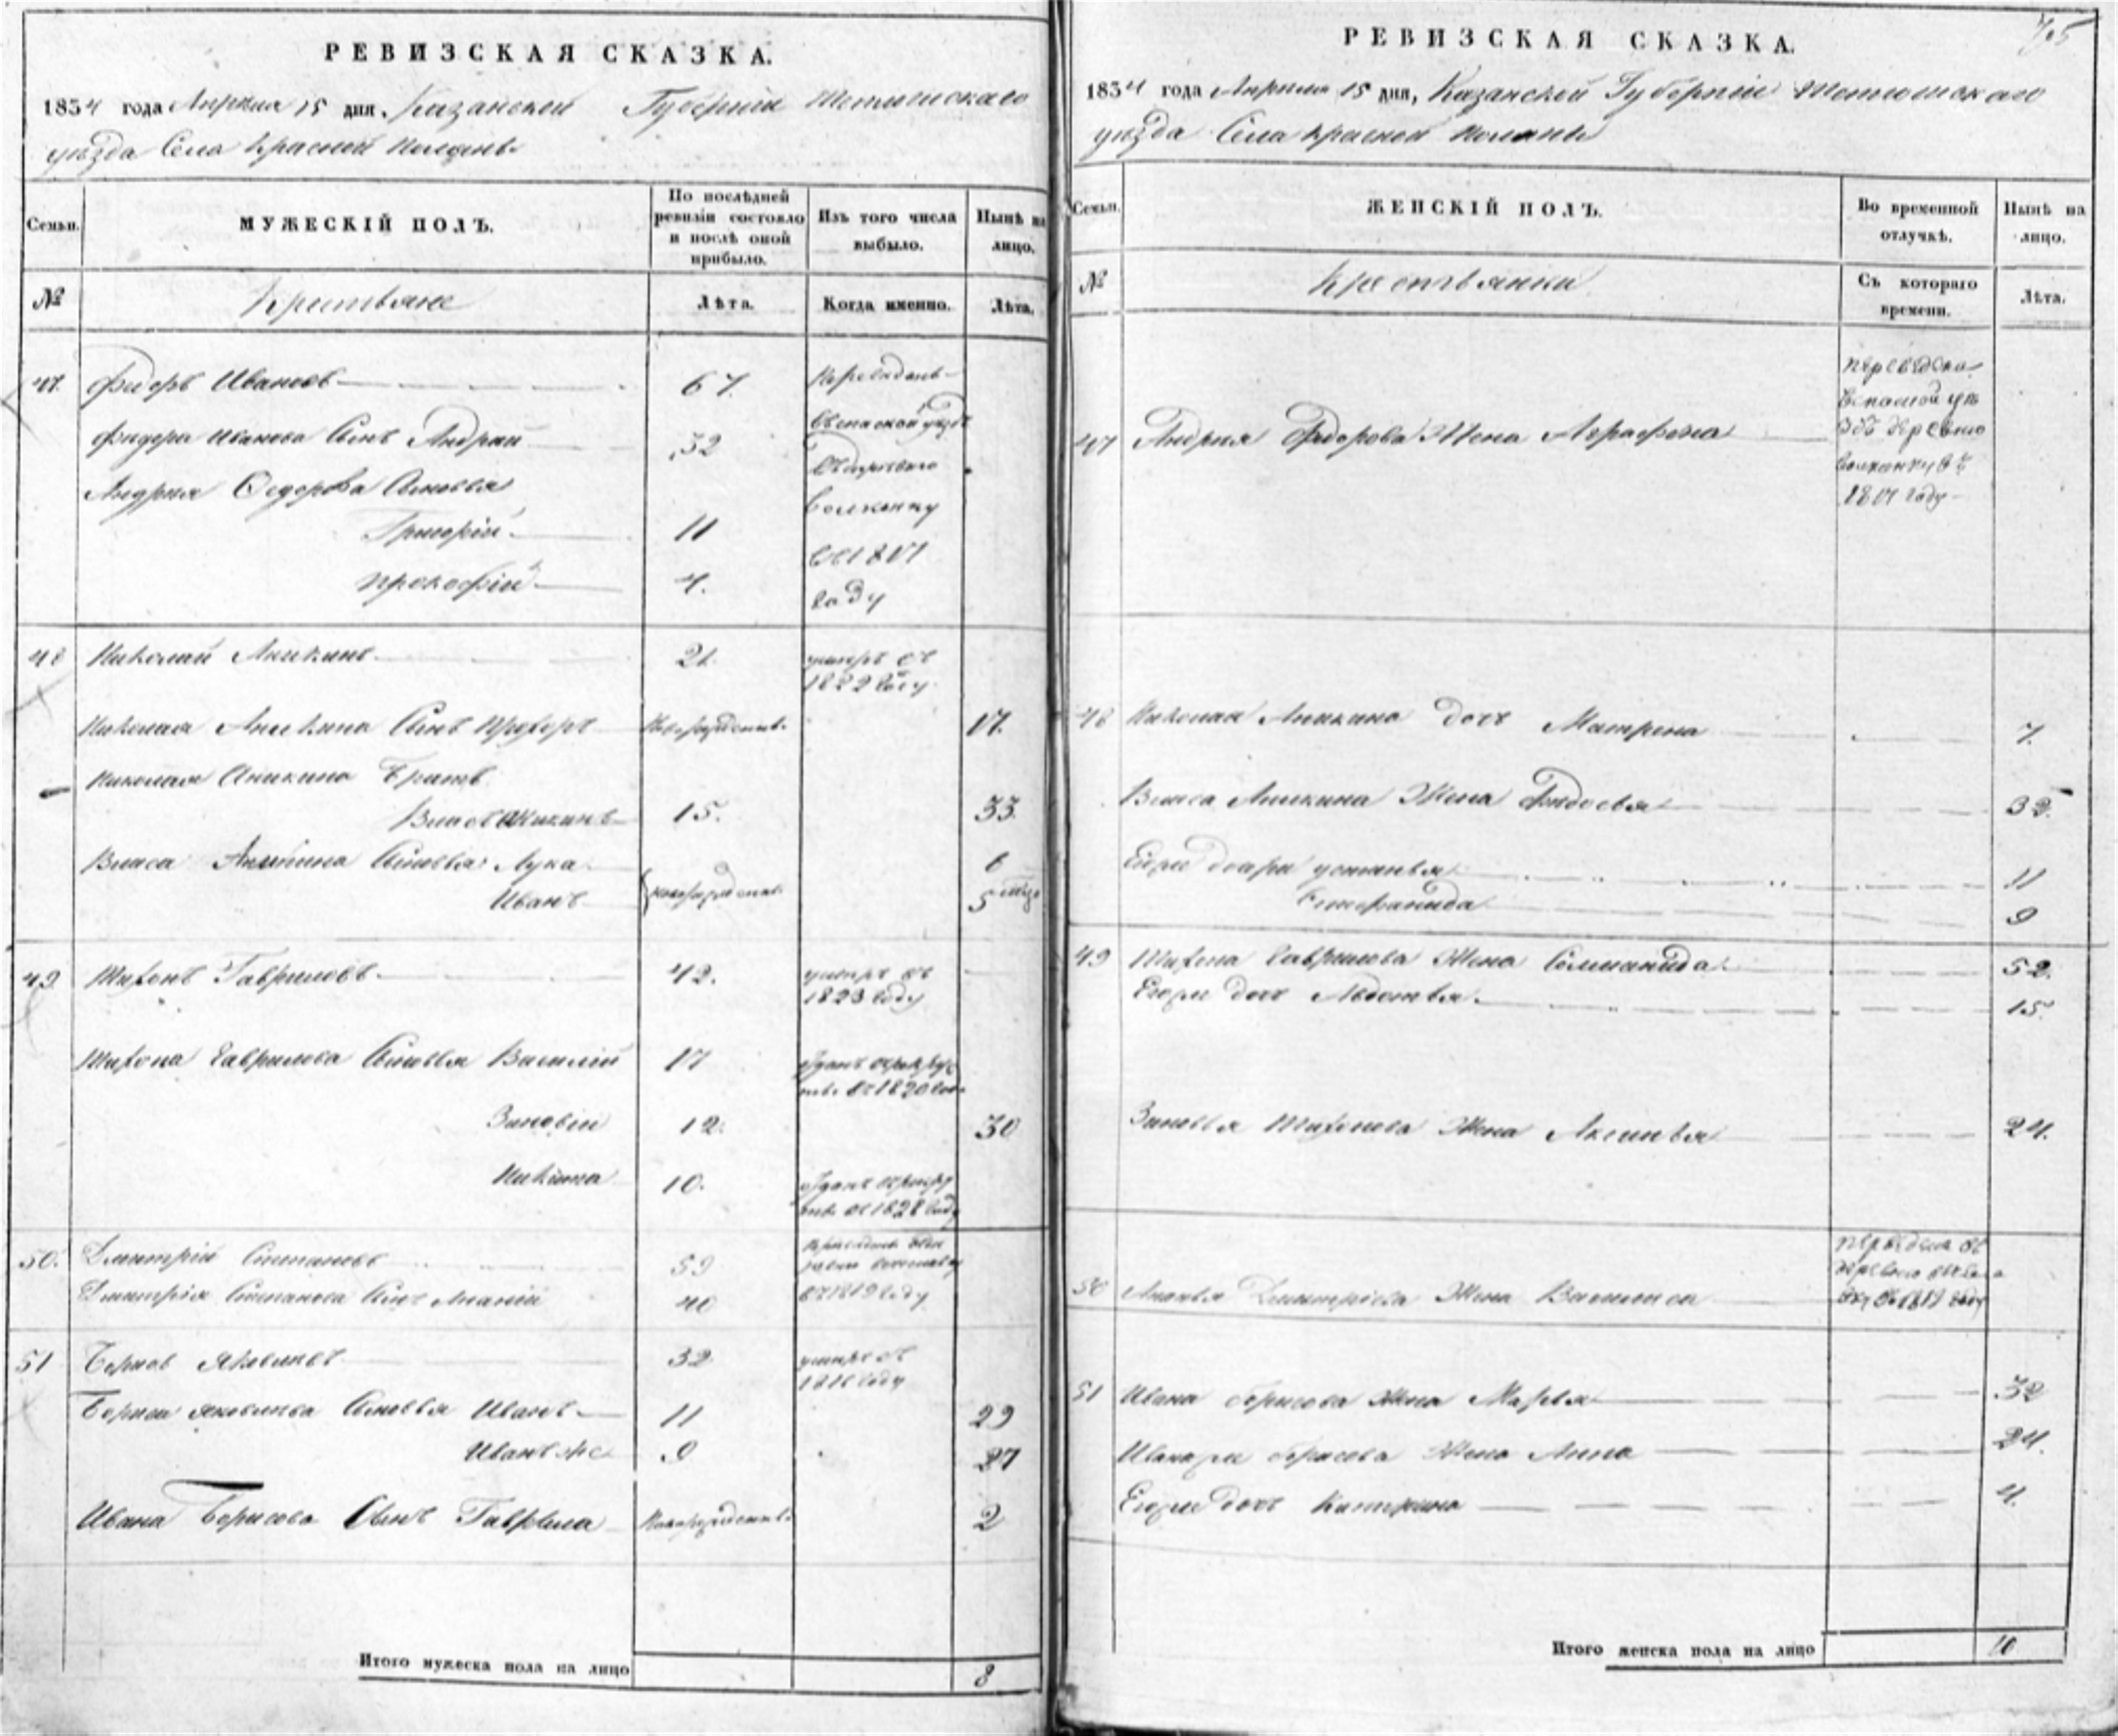 РЕВИЗСКАЯ СКАЗКА.
1834 года Апреля 15 дня, Казанской Губернiи Тетюшскаго
уѣзда Села Красной Поляны
Семьи.
МУЖЕСКIЙ ПОЛЪ.
По послѣдней
ревизiи состояло
и послѣ оной
прибыло.
Изъ того числа
выбыло.
Нынѣ на
лицо.
№
Крестьяне
Лѣта.
Когда именно.
Лѣта.
47. Федоръ Ивановъ 67. Переведенъ
Федора Иванова Сынъ Андрей 32
Андрея Федорова Сыновья
Григорiй 11
Прокофiй 4. году
48 Николай Аникинъ 21. умеръ въ
1822 году
Николая Аникина Сынъ Прохоръ Новорожденъ 17.
Николая Аникина Братъ
Власъ Аникинъ 15. 33.
Власа Аникина Сыновья Лука 6
Иванъ новорожденъ 5 мѣс
49 Тихонъ Гавриловъ 42. умеръ въ
1823 году
Тихона Гаврилова Сыновья Василiй 17 отданъ въ рекру
въ 1820 год
Зиновiй 12. 30
Никита 10. отданъ въ рекру
въ 1828 году
50. Дмитрiй Степановъ 59
Дмитрiя Степанова Сынъ Ананiй 40 въ 1819 году
51 Борисъ Яковлевъ 32 умеръ въ
1816 году
Бориса Яковлева Сыновья Иванъ 11 29
Иванъ же 9 27
Ивана Борисова Сынъ Гаврила Новорожденъ 2
Итого мужеска пола на лицо 8
705
РЕВИЗСКАЯ СКАЗКА.
1834 года Апреля 15 дня, Казанской Губернiи Тетюшскаго
уѣзда Села Красной Поляны
Семьи.
ЖЕНСКIЙ ПОЛЪ.
Во временной
отлучкѣ.
Нынѣ на
лицо.
№
Крестьянки
Съ котораго
времени.
Лѣта.
47 Андрея Федорова Жена Аграфена переведена
48 Николая Аникина дочь Матрена 7.
Власа Аникина Жена Федосья 32.
Его же дочери Устинья 11
9
49 Тихона Гаврилова Жена Соломанида 52.
Его же дочь Авдотья 15.
Зиновья Тихонова Жена Аксинья 24.
50 Ананья Дмитрiева Жена Василиса
51 Ивана Борисова Жена Марья 32
Ивана же Борисова Жена Анна 24.
Его же дочь Катерина 4.
Итого женска пола на лицо 10